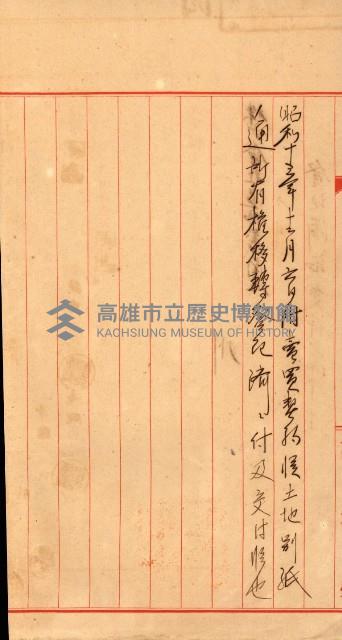 昭和十三年十二月六日附賣買契約ノ土地別紙
通所有權移轉登記濟ニ付及交付候也
高雄市立歷史博物館
KAOHSIUNG MUSEUM OF HISTORY